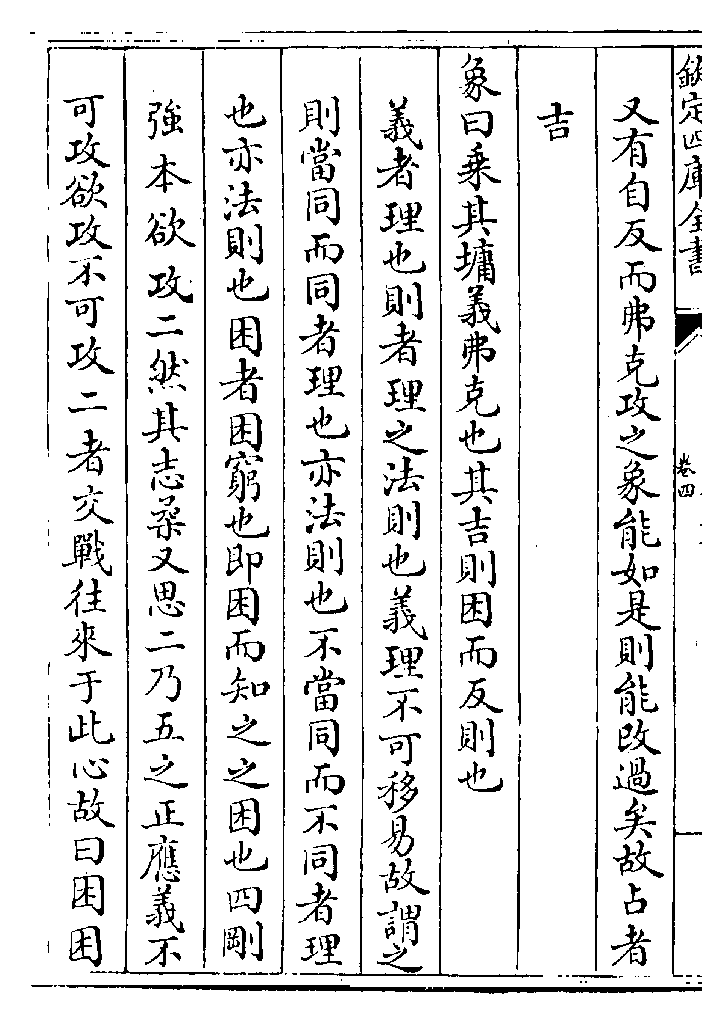 欽定四庫全書
卷四
又有自反而弗克攻之象能如是則能改過矣故占者
吉
象曰乗其墉義弗克也其吉則困而反則也
義者理也則者理之法則也義理不可移易故謂之
則當同而同者理也亦法則也不當同而不同者理
也亦法則也困者困窮也即困而知之之困也四剛
強本欲攻二然其志柔又思二乃五之正應義不
可攻欲攻不可攻二者交戰往來于此心故曰困困